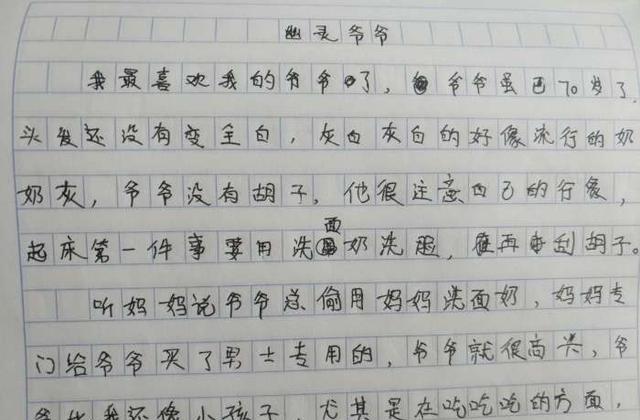 幽灵爷爷
我最喜欢我的爷爷了，爷爷虽已70岁了.
头发还没有变全白，灰白灰白的好像流行的奶
奶灰，爷爷没有胡子，他很注意自己的行象，
起床第一件事要用洗面奶洗脸，再刮胡子。
听妈妈说爷爷总偷用妈妈洗面奶，妈妈专
门给爷爷买了男士专用的，爷爷就很高兴，爷
爷比我还像小孩子，尤其是在吃吃吃的方面，